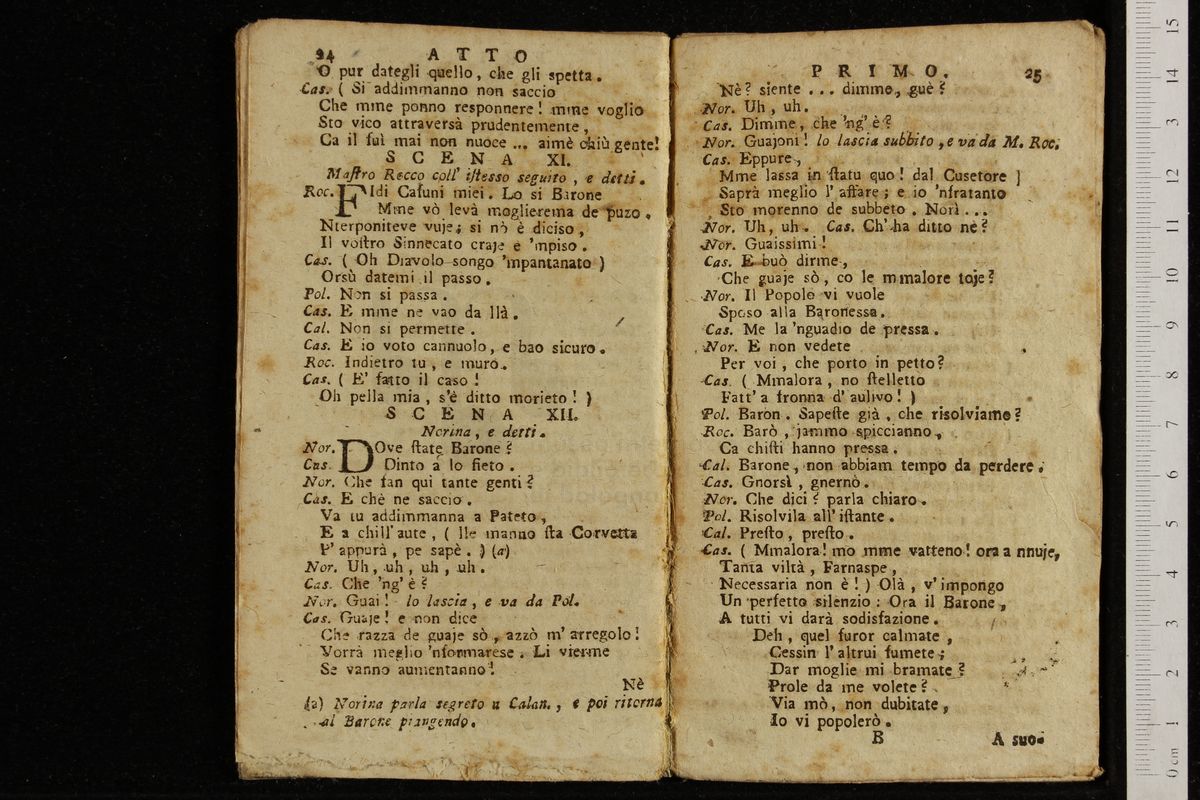 24 ATTO
O pur dategli quello, che gli spetta.
Cas. ( Si addimmanno non saccio
Che mme ponno responnere! mme voglio
Sto vico attraversà prudentemente,
Ca il fuì mai non nuoce ... aimè chiù gente!
SCENA XI.
Maſtro Rocco coll' iſtesso seguito, e detti.
Roc. FIdi Casuni miei. Lo si Barone
Mme vò levà moglierema de puzo.
Nterponiteve vuje; si nò è diciso,
Il voſtro Sinnecato craje e 'mpiso.
Cas. ( Oh Diavolo songo 'mpantanato )
Orsù datemi il passo.
Pol. Non si passa.
Cas. E mme ne vao da llà.
Cal. Non si permette.
Cas. E io voto cannuolo, e bao sicuro.
Roc. Indietro tu, e muro.
Cas. ( E' fatto il caso!
Oh pella mia, s'è ditto morieto! )
SCENA XII.
Norina, e detti.
Nor. DOve ſtate Barone?
Cas. Dinto a lo fieto.
Nor. Che fan quì tante genti?
Cas. E chè ne saccio.
Va tu addimmanna a Pateto,
E a chill'aute, ( lle manno ſta Corvetta
P'appurà, pe sapè. ) (a)
Nor. Uh, uh, uh, uh.
Cas. Che 'ng' è?
Nor. Guai! lo lascia, e va da Pol.
Cas. Guaje! e non dice
Che razza de guaje sò, azzò m'arregolo!
Vorrà meglio 'nformarese. Li vierme
Se vanno aumentanno!
Nè
(a) Norina parla segreto a Calan., e poi ritorna
al Barone piangendo.
PRIMO. 25
Nè? siente ... dimme, guè?
Nor. Uh, uh.
Cas. Dimme, che 'ng' è?
Nor. Guajoni! lo lascia subbito, e va da M. Roc.
Cas. Eppure,
Mme lassa in ſtatu quo! dal Cusetore ]
Saprà meglio l'affare; e io 'nfratanto
Sto morenno de subbeto. Norì...
Nor. Uh, uh. Cas. Ch' ha ditto nè?
Nor. Guaissimi!
Cas. E buò dirme,
Che guaje sò, co le mmalore toje?
Nor. Il Popolo vi vuole
Sposo alla Baronessa.
Cas. Me la 'nguadio de pressa.
Nor. E non vedete
Per voi, che porto in petto?
Cas. ( Mmalora, no ſtelletto
Fatt' a fronna d' aulivo! )
Pol. Baron. Sapeſte già, che risolviamo?
Roc. Barò, jammo spiccianno,
Ca chiſti hanno pressa.
Cal. Barone, non abbiam tempo da perdere.
Cas. Gnorsì, gnernò.
Nor. Che dici? parla chiaro.
Pol. Risolvila all' iſtante.
Cal. Preſto, preſto.
Cas. ( Mmalora! mo mme vatteno! ora a nnuje,
Tanta viltà, Farnaspe,
Necessaria non è! ) Olà, v' impongo
Un perfetto silenzio: Ora il Barone,
A tutti vi darà sodisfazione.
Deh, quel furor calmate,
Cessin l'altrui fumete;
Dar moglie mi bramate?
Prole da me volete?
Via mò, non dubitate,
Io vi popolerò.
B A suo-